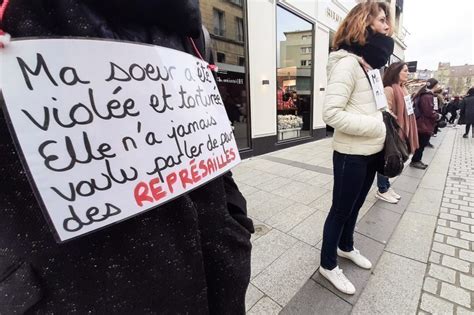 Ma soeur a été
violée et torturée
Elle n'a jamais
voulu parler de peur
des REPRÉSAILLES